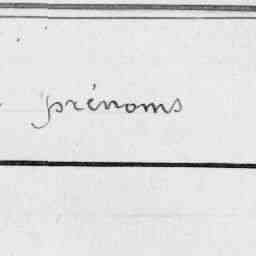 prénoms